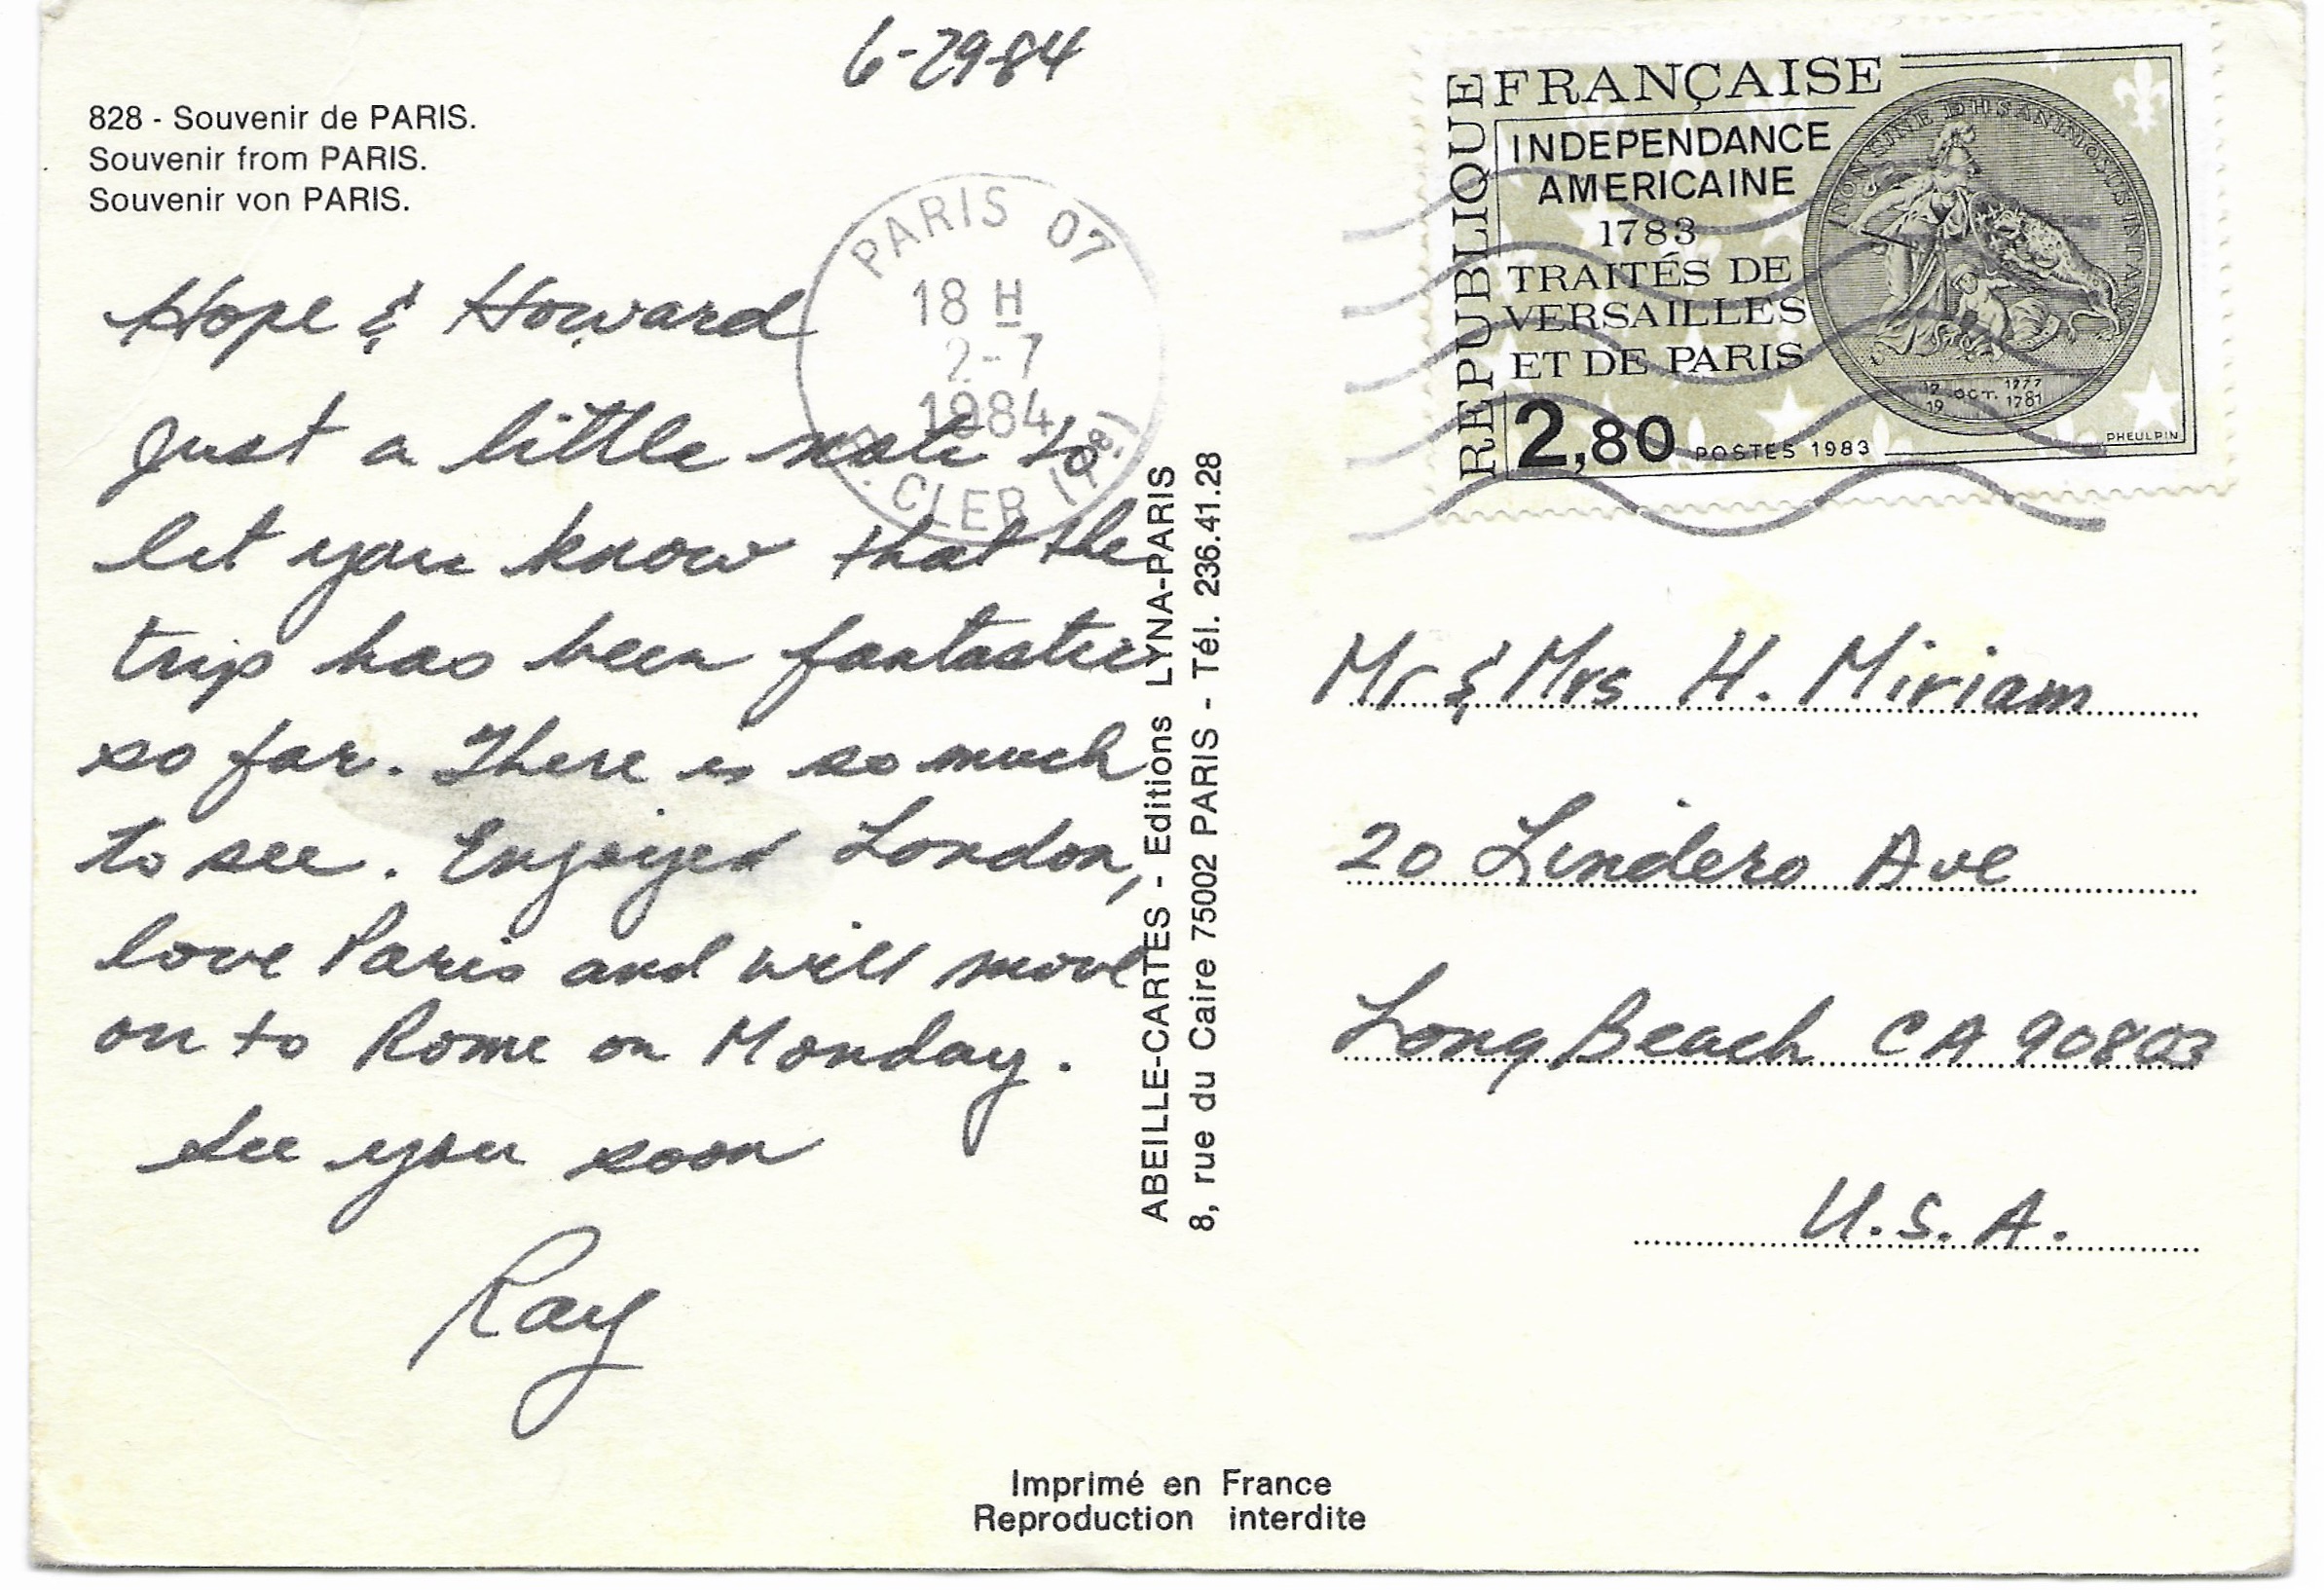 6-29-84
828 - Souvenir de PARIS.
Souvenir from PARIS.
Souvenir von PARIS.
PARIS 07
18 H
2-7
1984
CLER (7E)
Hope & Howard
Just a little note to
let you know that the
trip has been fantastic
so far. There is so much
to see. Enjoyed London,
love Paris and will move
on to Rome on Monday.
See you soon
Ray
ABEILLE-CARTES - Editions LYNA-PARIS
8, rue du Caire 75002 PARIS - Tél. 236.41.28
REPUBLIQUE FRANÇAISE
INDEPENDANCE
AMERICAINE
1783
TRAITÉS DE
VERSAILLES
ET DE PARIS
2,80 POSTES 1983
NON SINE DIIS ANIMOSUS INFANS
17 OCT. 1777
19 1781
PHEULPIN
Mr & Mrs H. Miriam
20 Lindero Ave
Long Beach CA 90803
U.S.A.
Imprimé en France
Reproduction interdite